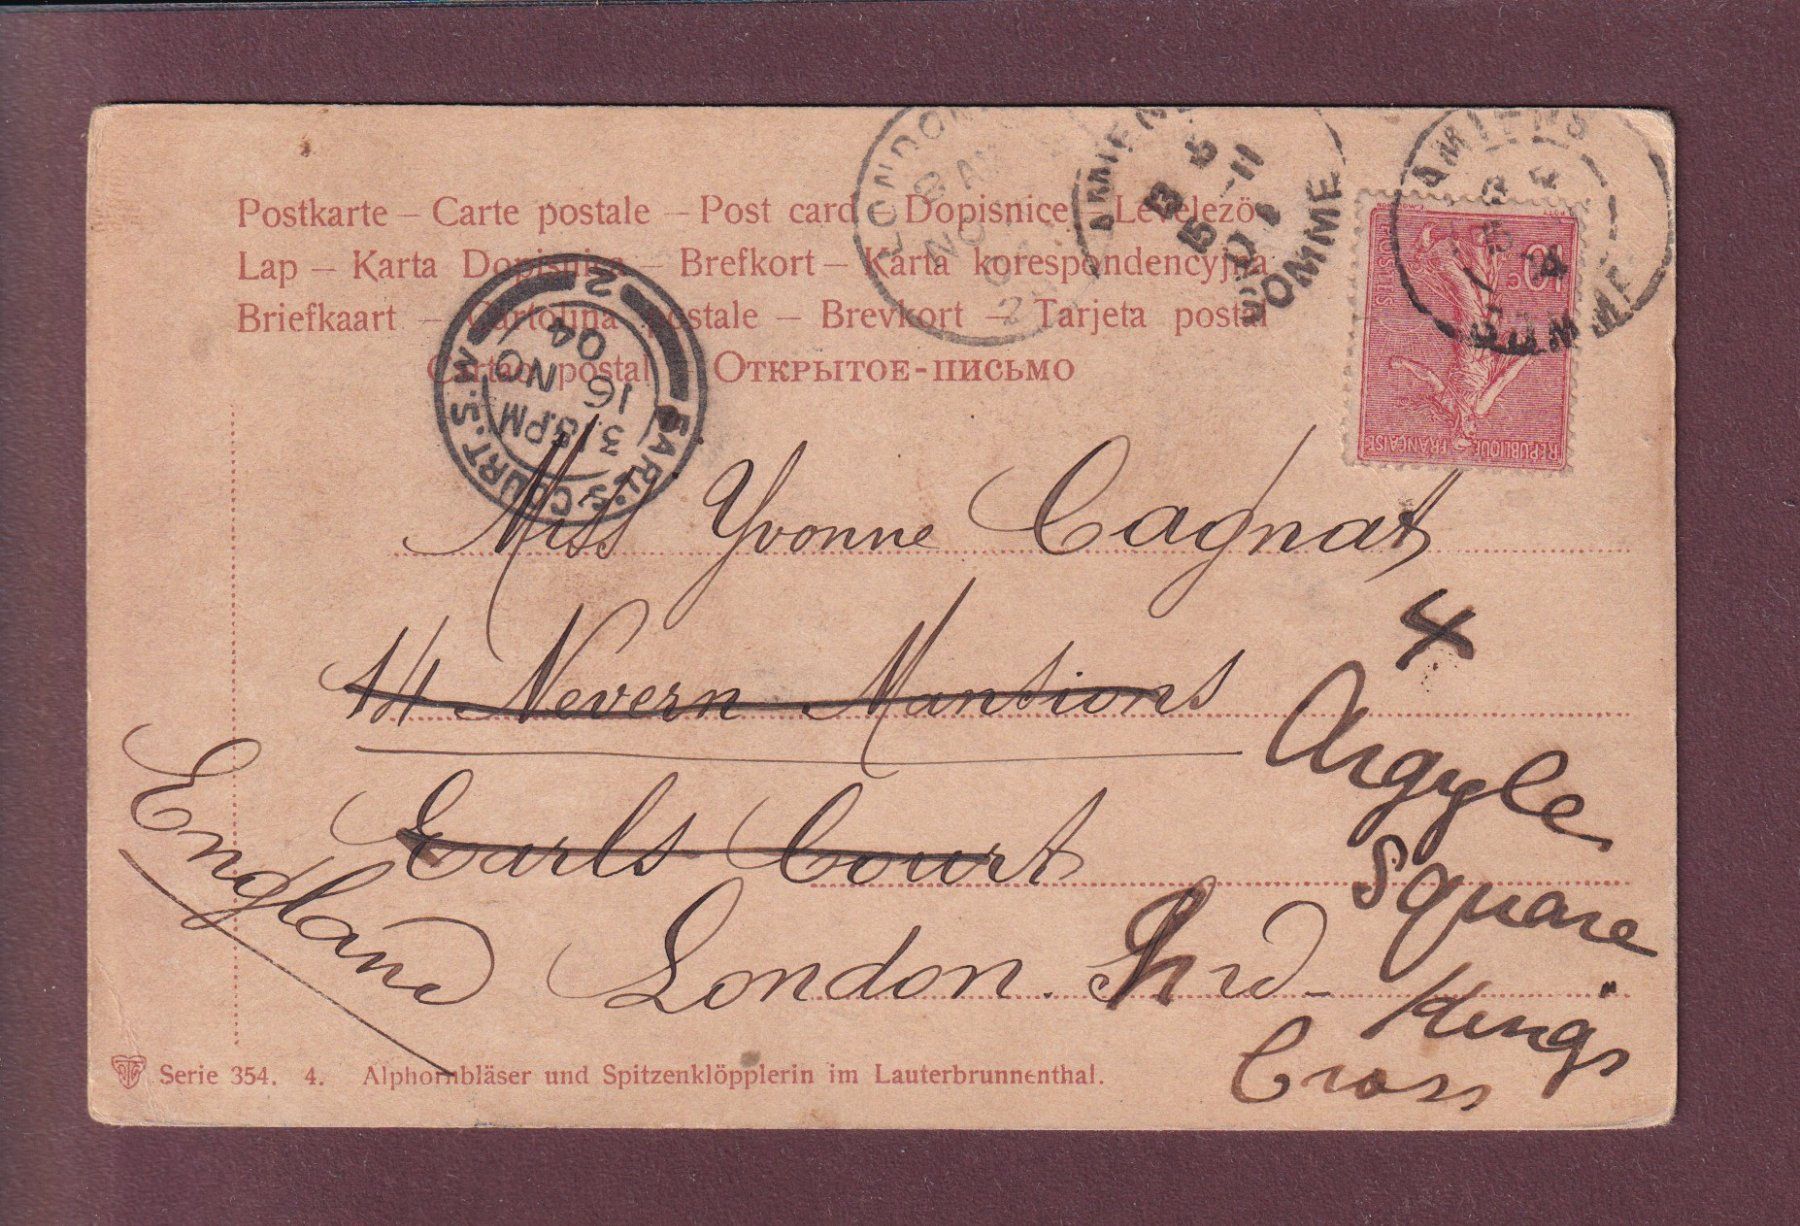 Postkarte – Carte postale – Post card – Dopisnice – Levelezö-
Lap – Karta Dopisnica – Brefkort – Karta korespondencyjna
Briefkaart – Cartolina postale – Brevkort – Tarjeta postal
Cartao postal ОТКРЫТОЕ-ПИСЬМО
LONDON
8 AM
NO
04
AMIENS
SOMME
15 -11
AMIENS
SOMME
10c
POSTES
REPUBLIQUE FRANCAISE
EARL'S COURT. S.W.
3.15PM
16 NO
04
2
Miss Yvonne Cagnat
14 Nevern Mansions
Earls Court
London.
England
4
Argyle
Square
Kings
Cross
Serie 354. 4. Alphornbläser und Spitzenklöpplerin im Lauterbrunnenthal.